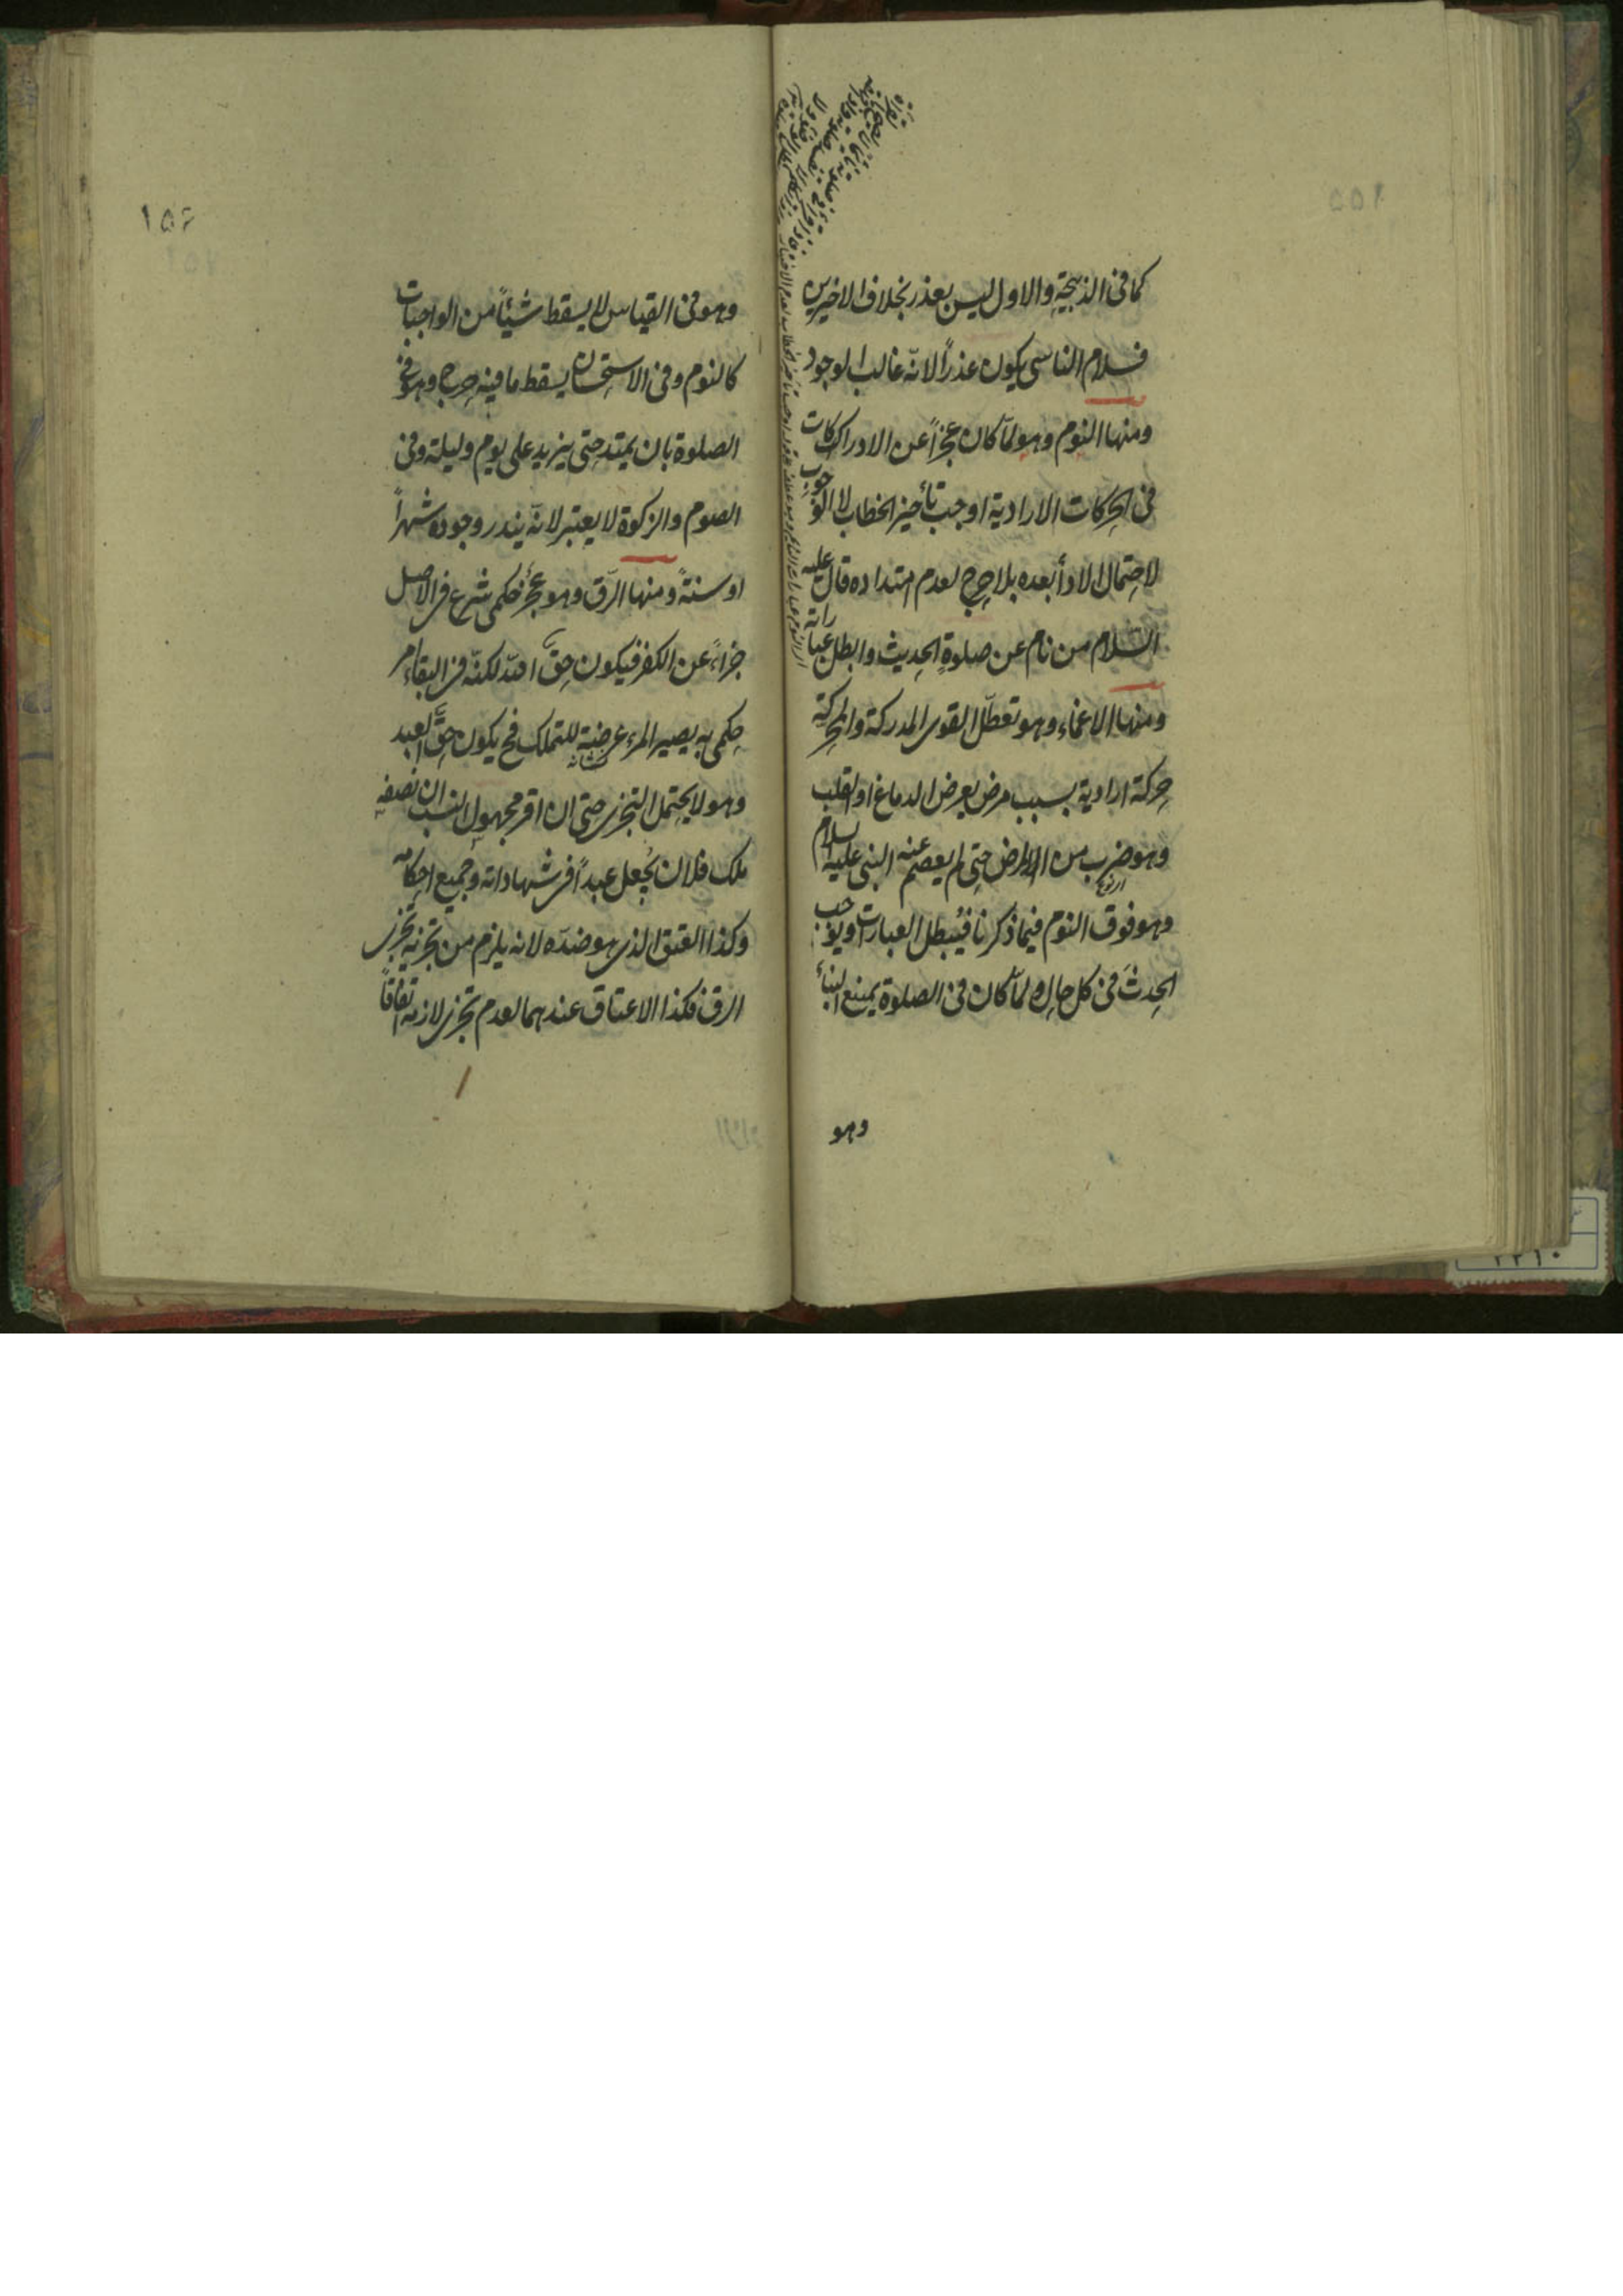 كما فى الذبيحة والاول ليس بعذر بخلاف الاخيرين
فسلام الناسى يكون عذراً لانّه غالب الوجود
ومنها النوم وهو لمّا كان عجزاً عن الادراكات
فى الحركات الارادية اوجب تأخير الخطاب لا الوجوب
لاحتمال الادأ بعده بلا حرج لعدم امتداده قال عليه
السّلام من نام عن صلوةٍ الحديث وابطل عباراته
ومنها الاغماء وهو تعطّل القوى المدركة والمحركة
حركة ارادية بسبب مرض يعرض الدماغ او القلب
وهو ضرب من المرض حتى لم يعصم عنه النبى عليه السلام
وهو فوق النوم فيما ذكرنا فيُبطل العبارات ويوجب
الحدثَ فى كل حال ولمّا كان فى الصلوة يمنع البنأ
وهو
١٥٦
وهو فى القياس لا يسقط شيئاً من الواجبات
كالنوم وفى الاستحسان يسقط ما فيه حرج وهو فى
الصلوة بان يمتد حتى يزيد على يوم وليلة وفى
الصوم والزكوة لا يعتبر لانّه يندر وجوده شهراً
او سنةً ومنها الرّق وهو عجز حكمى شرع فى الاصل
جزاءً عن الكفر فيكون حقّ اللّه لكنّه فى البقاء امر
حكمى به يصير المرء عرضة للتملك فح يكون حقّ العبد
وهو لا يحتمل التجزى حتى ان اقر مجهول النسب ان نصفه
ملك فلان يُجعل عبداً فى شهاداته وجميع احكامه
وكذا العتق الذى هو ضدّه لانه يلزم من تجزيه تجزى
الرق فكذا الاعتاق عندهما لعدم تجزى لازمه اتفاقاً